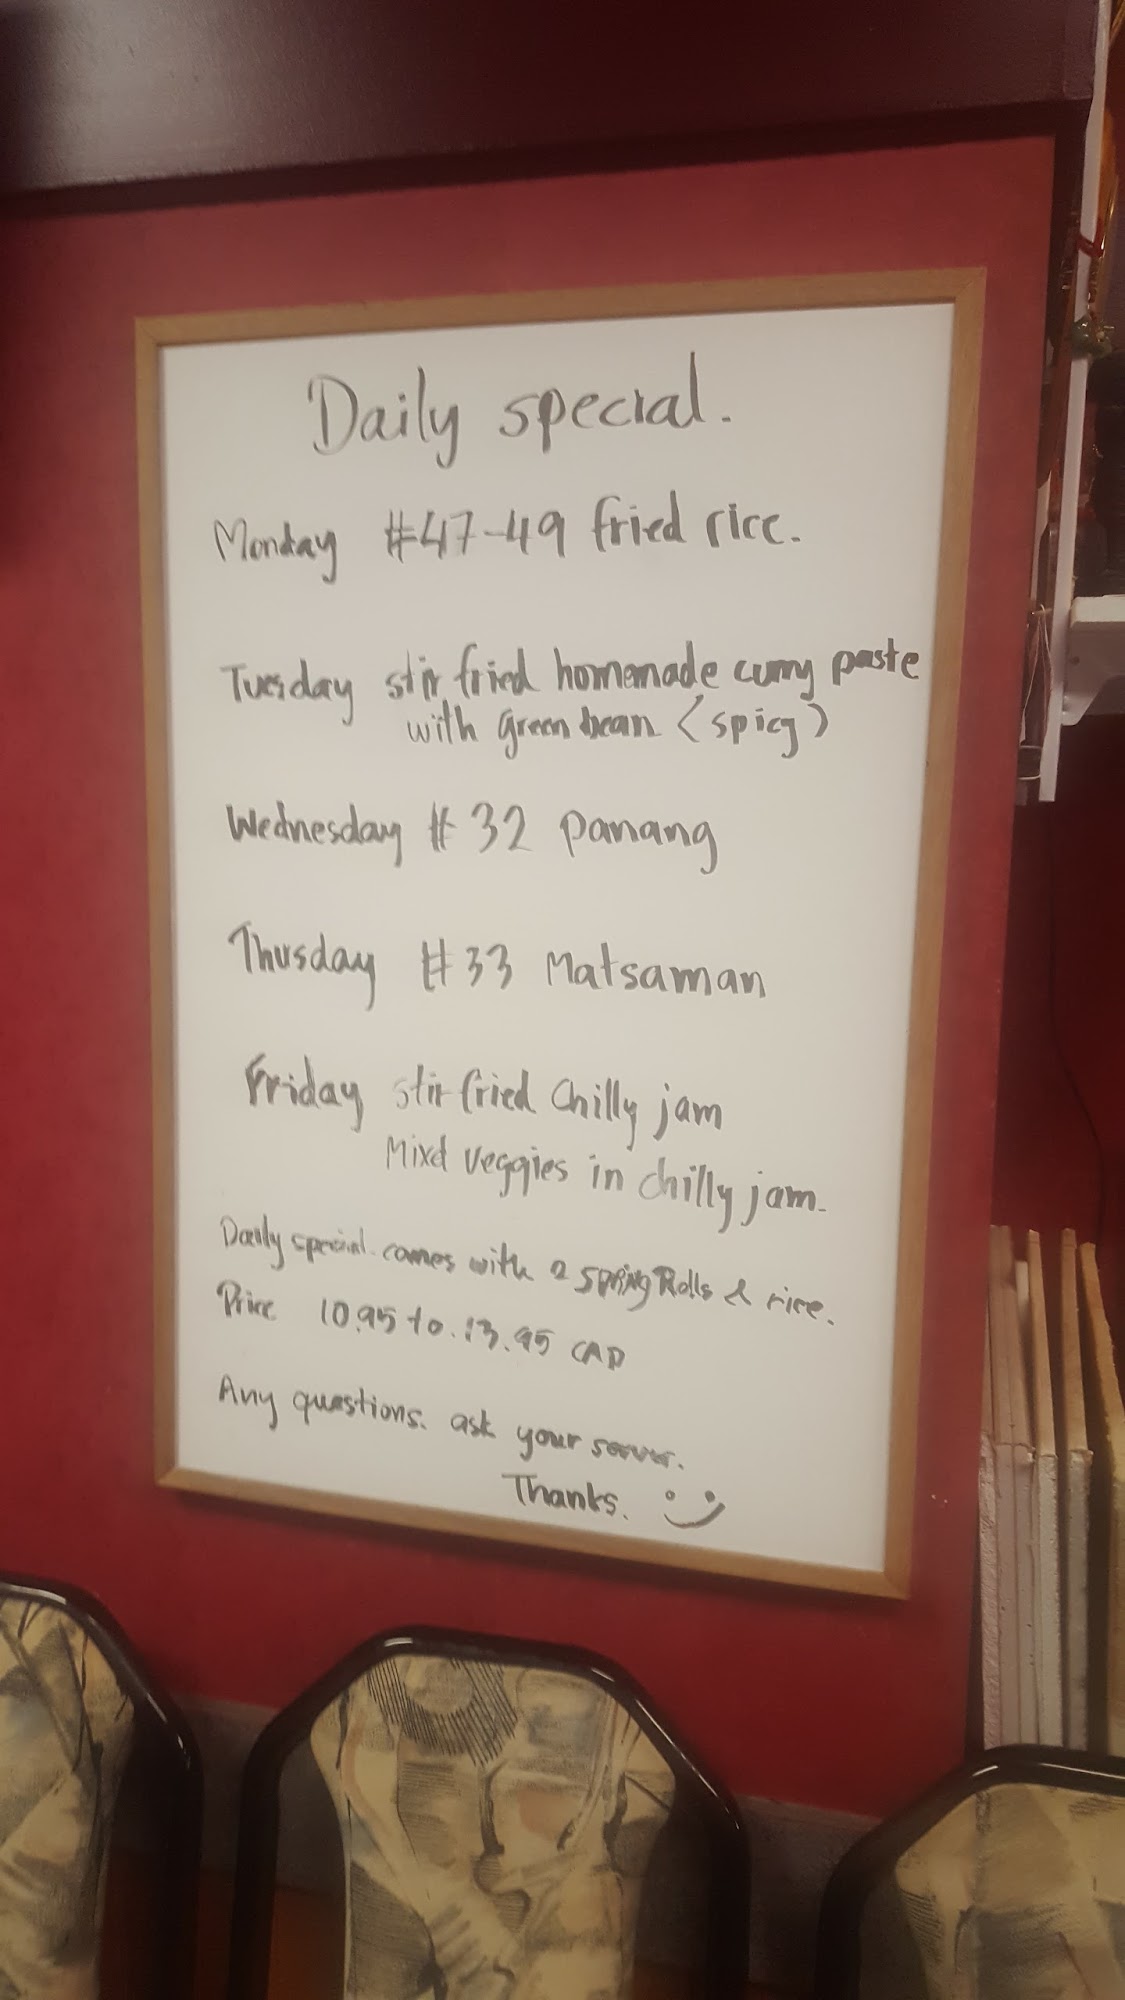 Daily special.
Monday #47-49 fried rice.
Tuesday stir fried homemade curry paste
with green bean (spicy)
Wednesday #32 Panang
Thusday #33 Matsaman
Friday stir fried Chilly jam
Mixd veggies in chilly jam.
Daily special. comes with 2 Spring Rolls & rice.
Price 10.95 to .13.95 CAD
Any questions. ask your server.
Thanks.